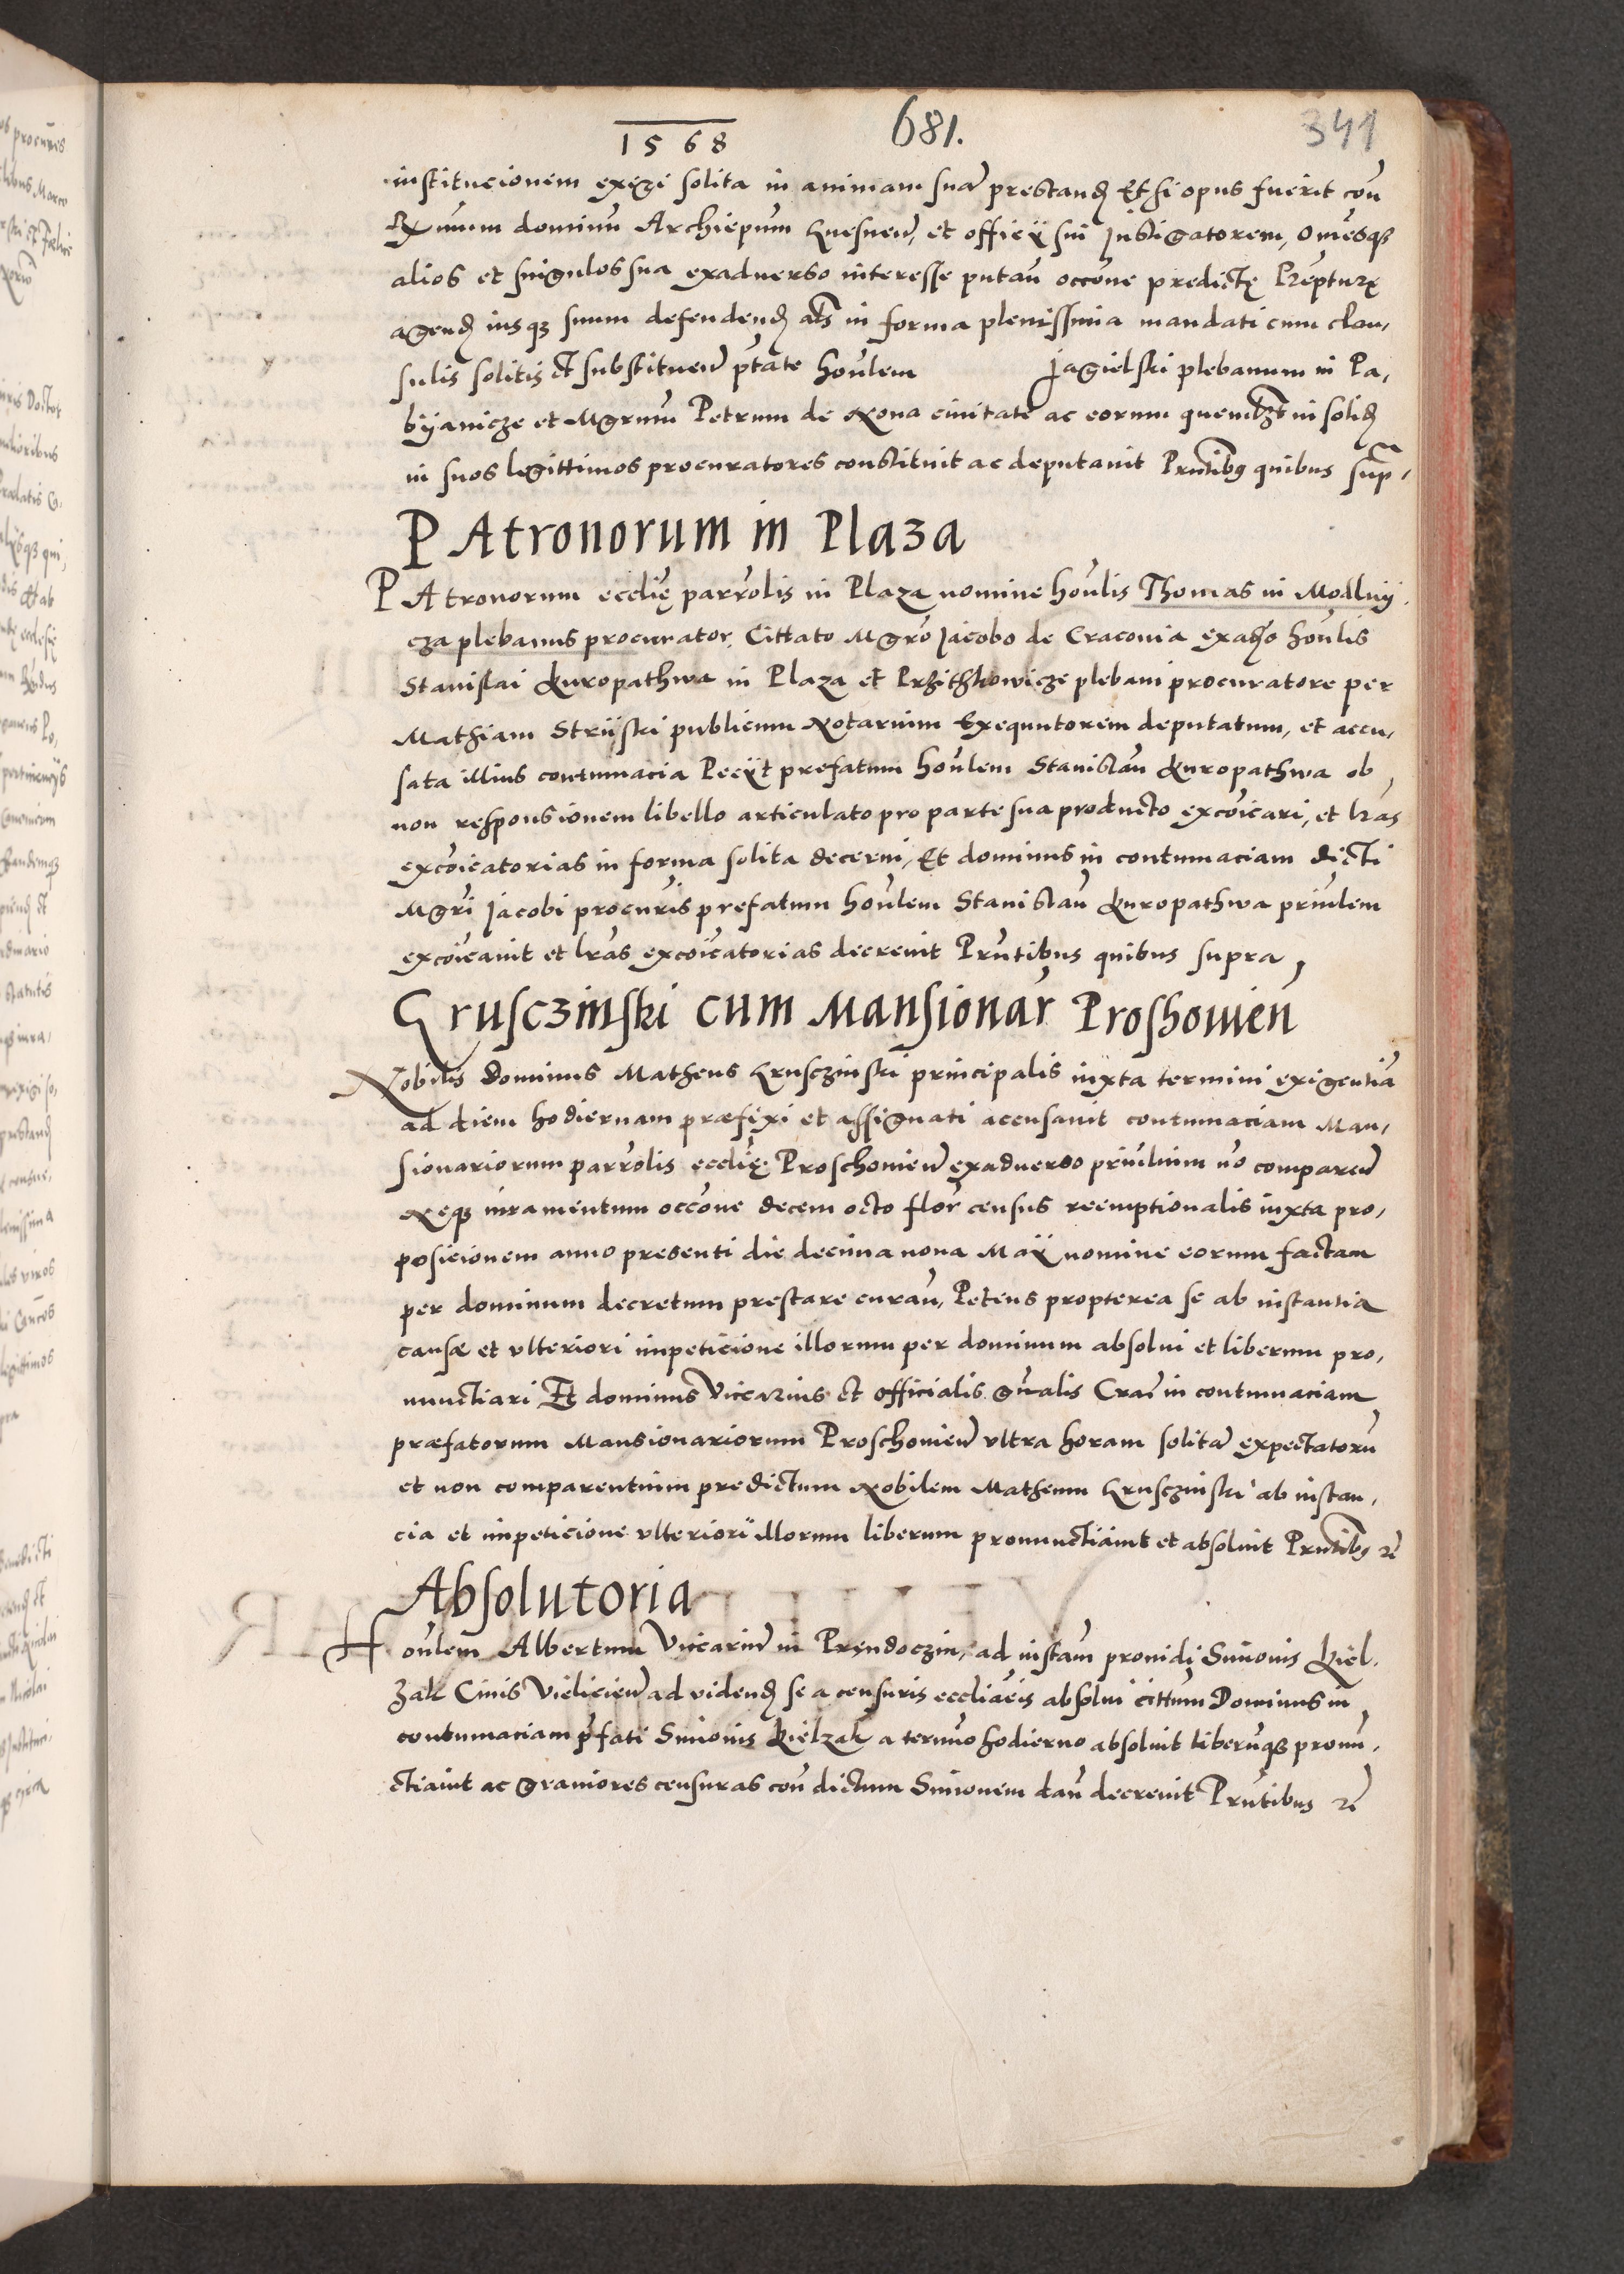 1568 681. 341
institucionem exigi solita in animam suā prestand Et si opus fuerit coñ
Rx̃mum dominū Archiep̃um Gnesneñ, et officÿ sui Instigatorem, Omẽsq3
alios et singulos sua exaduerso interesse putañ occõne predictę Rẽpturę
agend iusq3 suum defendend als in forma plenissima mandati cum clau,
sulis solitis et substitueñ p̃tate hoũlem Jagielski plebanum in Pa,
bÿanicze et Mgrum Petrum de Noua ciuitate ac eorum quemlibet in solid
in suos legittimos procuratores constituit ac deputauit Prñtibus quibus sup̃,
PAtronorum in Plaza
PAtronorum ecclię parrõlis in Plaza nomine hoũlis Thomas in Modlnÿ,
cza plebanus procurator, Cittato Mgrõ Jacobo de Cracouia exad̃so hoũlis
Stanislai Kuropathwa in Plaza et Przithkowicze plebani procuratore per
Mathiam Strÿski publicum Notarium Exequutorem deputatum, et accu,
sata illius contumacia Petÿt prefatum hoũlem Stanislaũ Kuropathwa ob
non responsionem libello articulato pro parte sua producto excõicari, et lr̃as
excõicatorias in forma solita decerni, Et dominus in contumaciam dicti
Mgr̃i Jacobi procur̃is prefatum hoũlem Stanislaũ Kuropathwa priũlem
excõicauit et lr̃as excõicatorias decreuit Prñtibus quibus supra,
Grusczinski cum Mansionar̃ Proshouieñ
Nobilis dominus Matheus Grusczinski principalis iuxta termini exigentiã
ad diem hodiernam præfixi et assignati accusauit contumaciam Man,
sionariorum parrõlis ecclię Proschouieñ exaduerso priũlium nõ compareñ
Neq3 iuramentum occõne decem octo flor̃ census reemptionalis iuxta pro,
posicionem anno presenti die decima nona Maÿ nomine eorum factam
per dominum decretum prestare curañ, Petens propterea se ab instantia
causæ et vlteriori impeticione illorum per dominum absolui et liberum pro,
nunctiari Et dominus Vicarius et officialis gñalis Crac̃ in contumaciam
præfatorum Mansionariorum Proschouieñ vltra horam solitã expectatorũ
et non comparentium predictum Nobilem Matheum Grusczinski ab instan,
cia et impeticione vlteriori illorum liberum pronunctiauit et absoluit Prñtibus rc̃
Absolutoria
Hoũlem Albertum Vicariũ in Pręndoczin, ad instañ prouidi Simonis Kiel,
zak Ciuis Vielicieñ ad videnđ se a censuris eccliãcis absolui cittum Dominus in
contumaciam p̃fati Simonis Kielzak a termĩo hodierno absoluit liberũq3 pronũ,
ctiauit ac grauiores censuras coñ dictum Simonem dañ decreuit Prñtibus rc̃